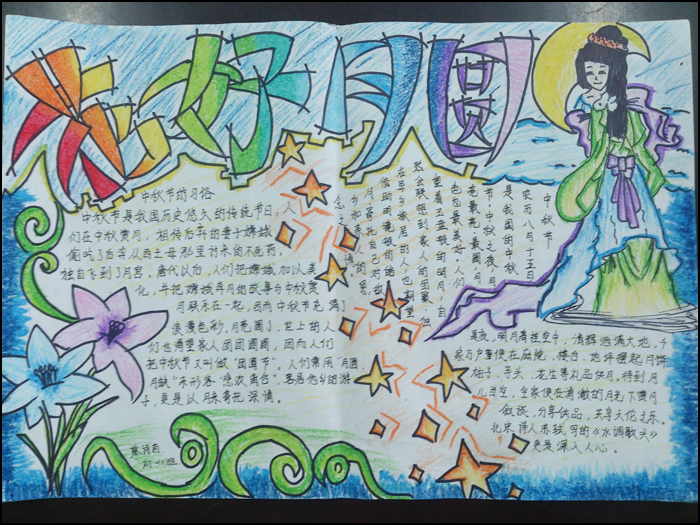 花好月圆
中秋节的习俗
中秋节是我国历史悠久的传统节日,人
们在中秋赏月,相传后羿的妻子嫦娥
偷吃了后羿从西王母那里讨来的不死药,
独自飞到了月宫,唐代以后,人们把嫦娥加以美
化,并把嫦娥奔月的故事与中秋赏
月联系在一起,因而中秋节充满了
浪漫色彩,月亮圆了,世上的人
们也希望家人团团圆圆,因而人们
把中秋节又叫做"团圆节"。人们常用"月圆
月缺"来形容"悲欢离合",客居他乡的游
子,更是以月来寄托深情。
中秋节
农历八月十五日
是我国的中秋
节,中秋之夜,月
亮最亮、最圆,月
色也最美好,人们
望着玉盘般的明月,自
然会联想到家人的团聚,但
在异乡旅居的人,也期望
借助明镜般的皓
月寄托自己对故
乡和亲人的思
念之情。
是夜,明月高挂空中,清辉洒满大地,千
家万户便在庭院、楼台、地坪摆起月饼
柚子、芋头、花生等礼品供月,待到月
儿当空,全家便在清澈的月光下赏月
叙谈,分享供品,共享天伦之乐。
北宋诗人苏轼写的《水调歌头》
更是深入人心。